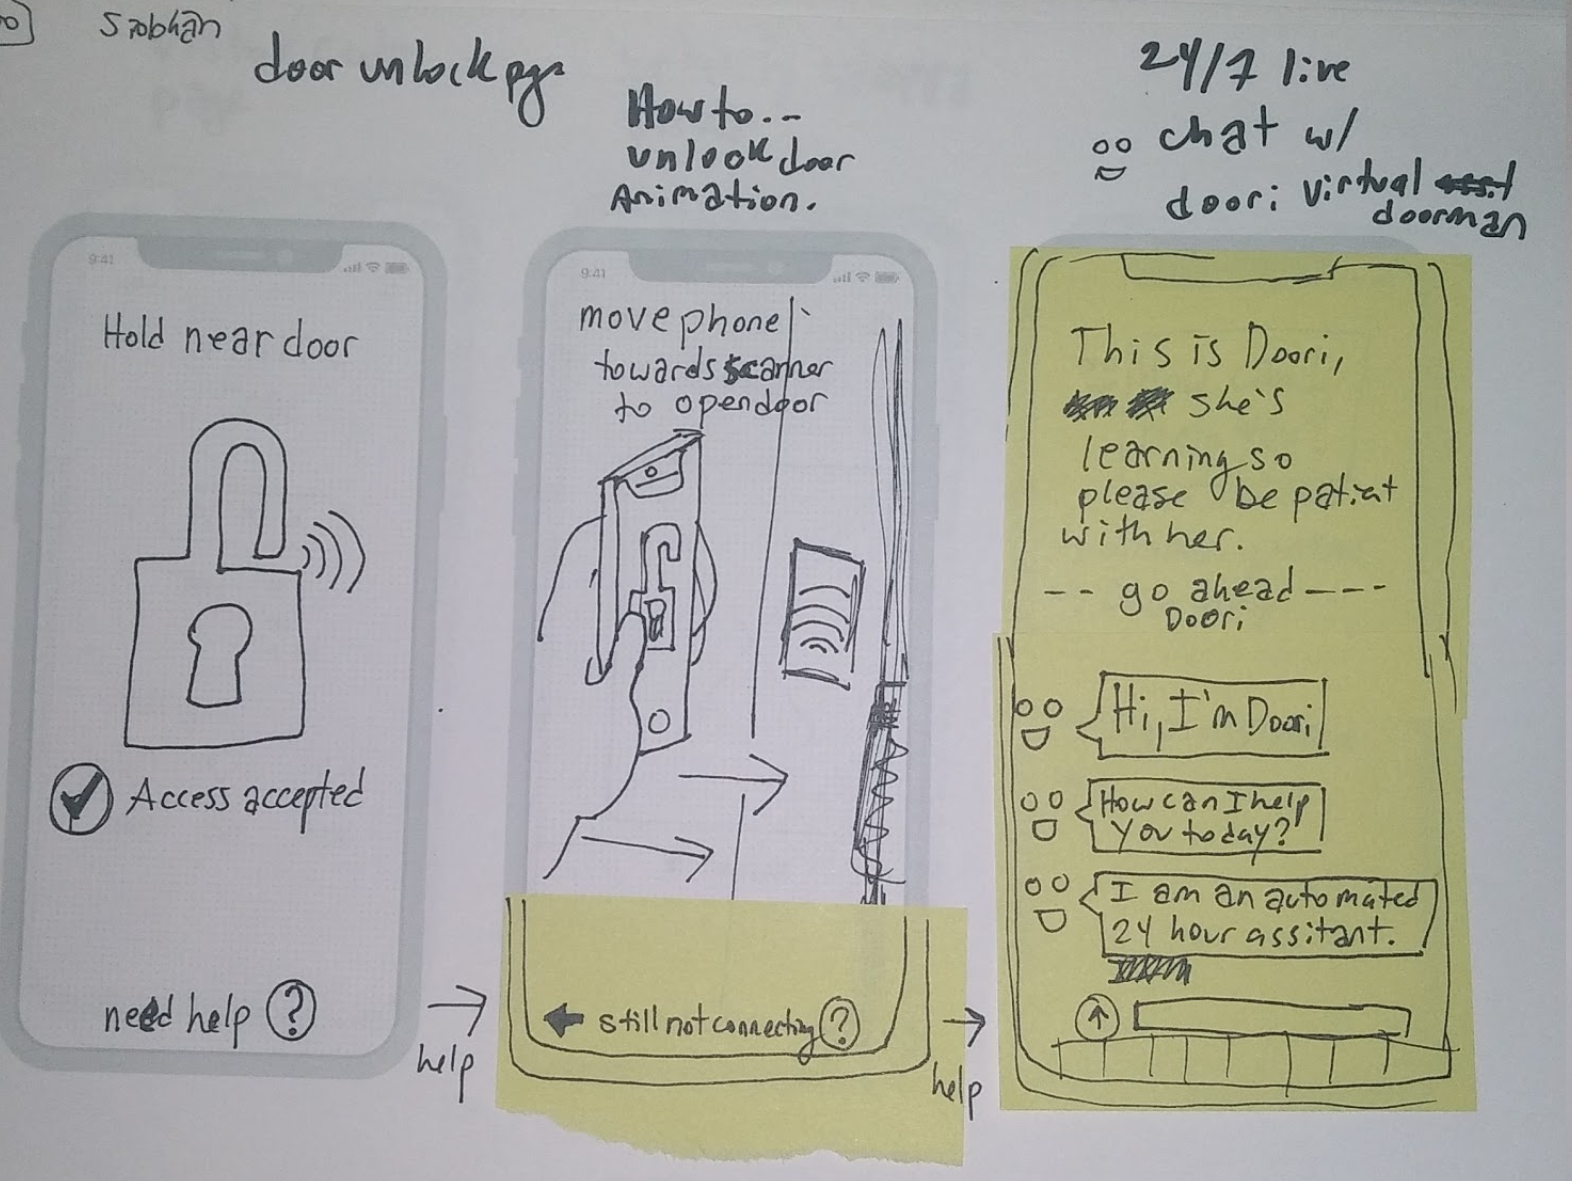 Siobhán
door unlock pgs
How to...
unlock door
Animation.
24/7 live
chat w/
doori virtual
doorman
9:41
Hold near door
Access accepted
need help ?
help
9:41
move phone
towards scanner
to open door
still not connecting ?
help
This is Doori,
she's
learning so
please be patient
with her.
-- go ahead ---
Doori
Hi, I'm Doori
How can I help
you today?
I am an automated
24 hour assitant.